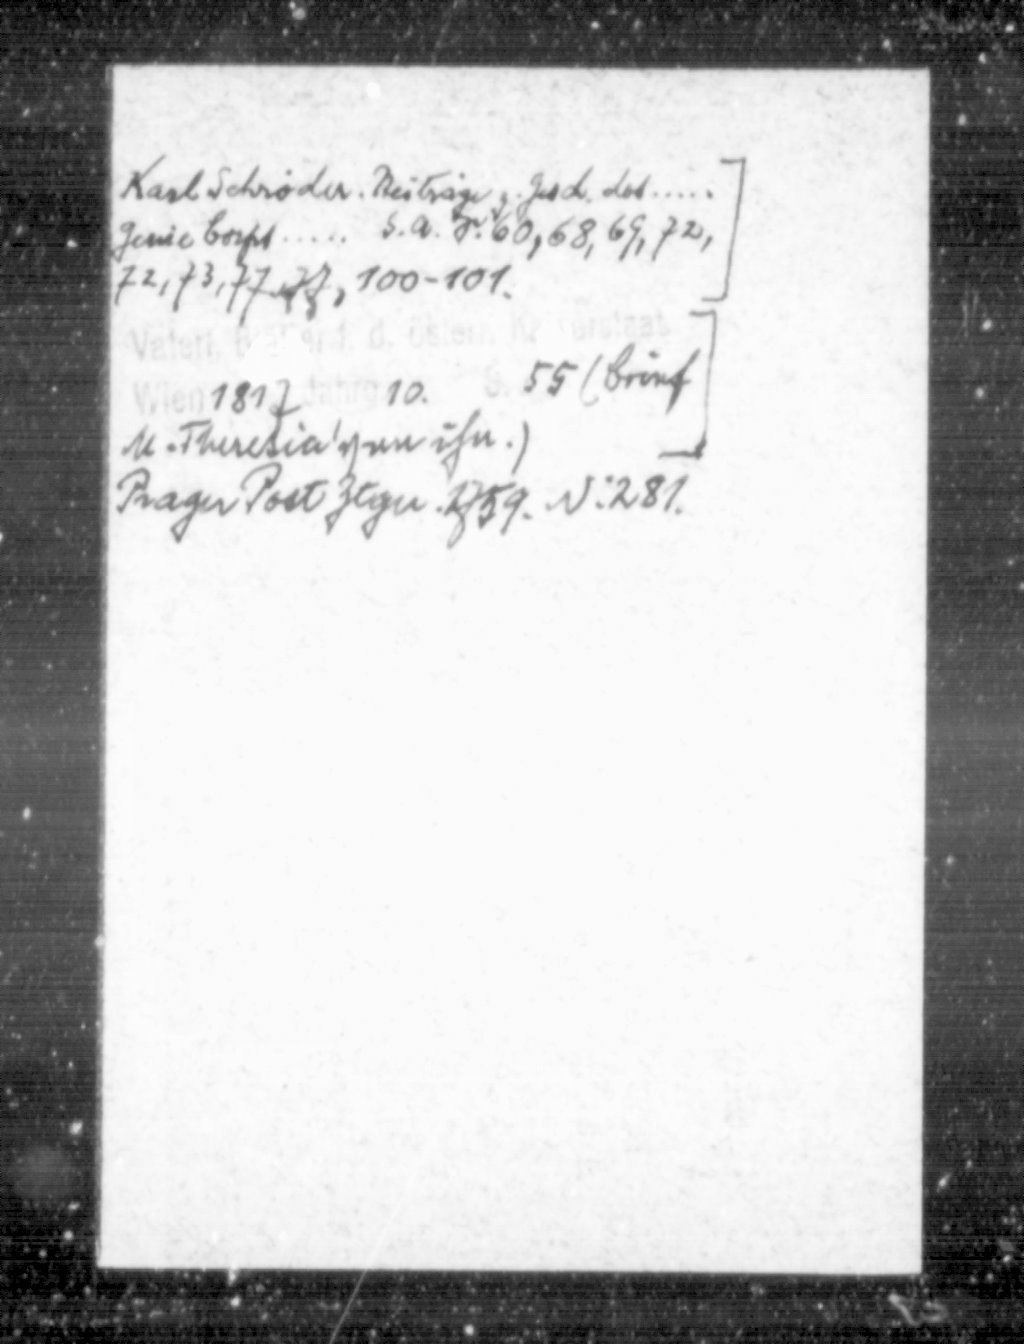 Karl Schröder. Beiträge z. Gesch. des .....
Genie Corps ..... S. A. S. 60, 68, 69, 72,
72, 73, 77, 100-101.
Vaterl. Blätter f. d. österr. Kaiserstaat
Wien 1817 Jahrg. 10. S. 55 (Brief
M. Theresia's an ihn.)
Prager Post Ztgn. 1759. N: 281.